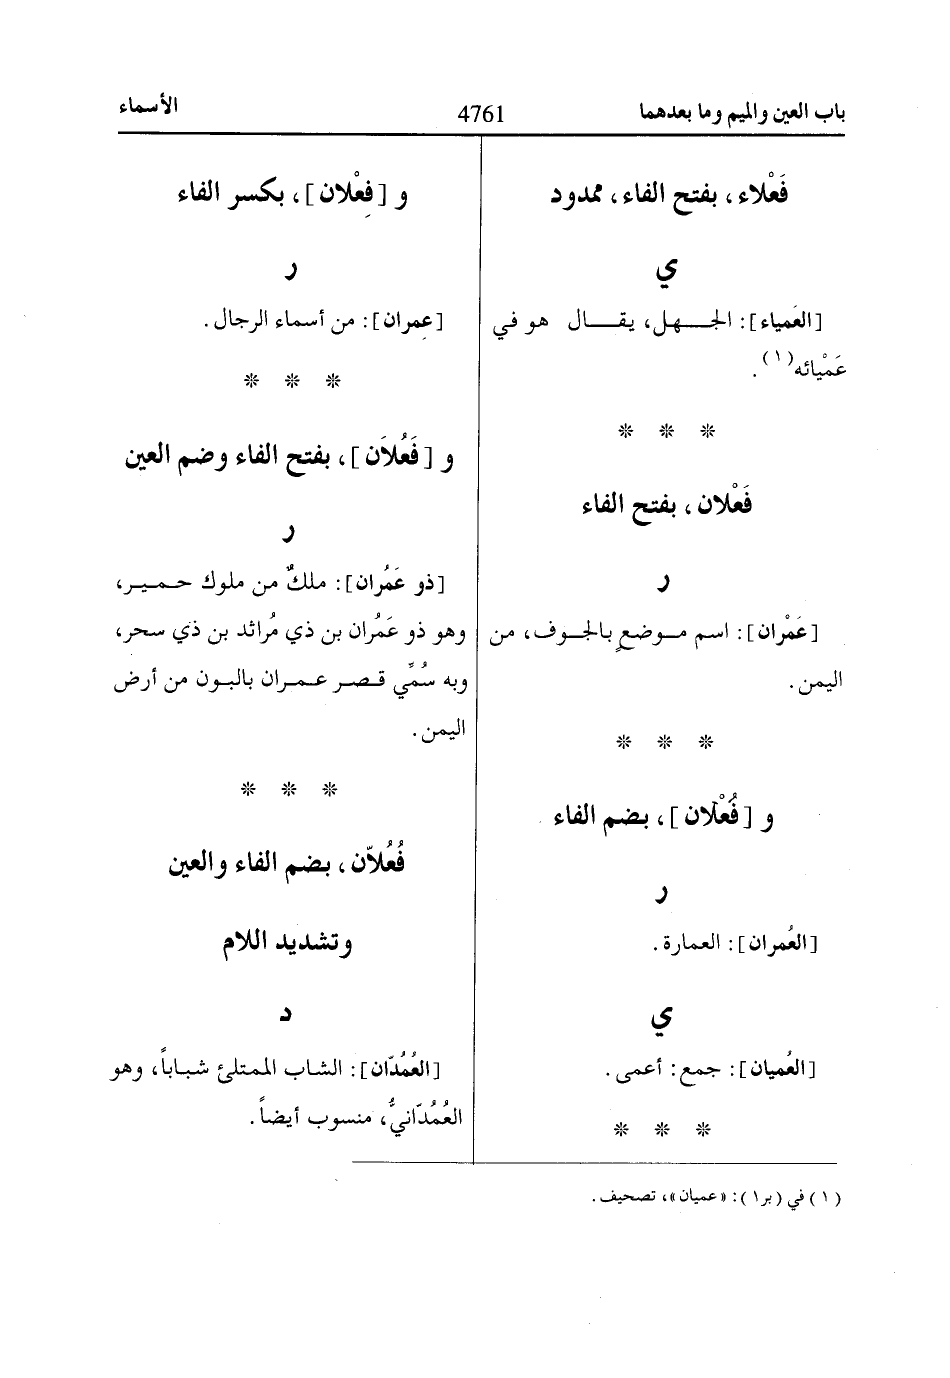 باب العين والميم وما بعدهما
4761
الأسماء
فَعْلاء، بفتح الفاء، ممدود
ي
[العَمياء]: الجهل، يقال هو في
عَمْيائه(١).
* * *
فَعْلان، بفتح الفاء
ر
[عَمْران]: اسم موضعٍ بالجوف، من
اليمن.
* * *
و [فُعْلان]، بضم الفاء
ر
[العُمران]: العمارة.
ي
[العُميان]: جمع: أعمى.
* * *
و [فِعْلان]، بكسر الفاء
ر
[عِمران]: من أسماء الرجال.
* * *
و [فَعُلاَن]، بفتح الفاء وضم العين
ر
[ذو عَمُران]: ملكٌ من ملوك حمير،
وهو ذو عَمُران بن ذي مُراثد بن ذي سحر،
وبه سُمِّي قصر عمران بالبون من أرض
اليمن.
* * *
فُعُلاّن، بضم الفاء والعين
وتشديد اللام
د
[العُمُدّان]: الشاب الممتلئ شباباً، وهو
العُمُدّانيُّ، منسوب أيضاً.
(١) في (بر١): «عميان»، تصحيف.